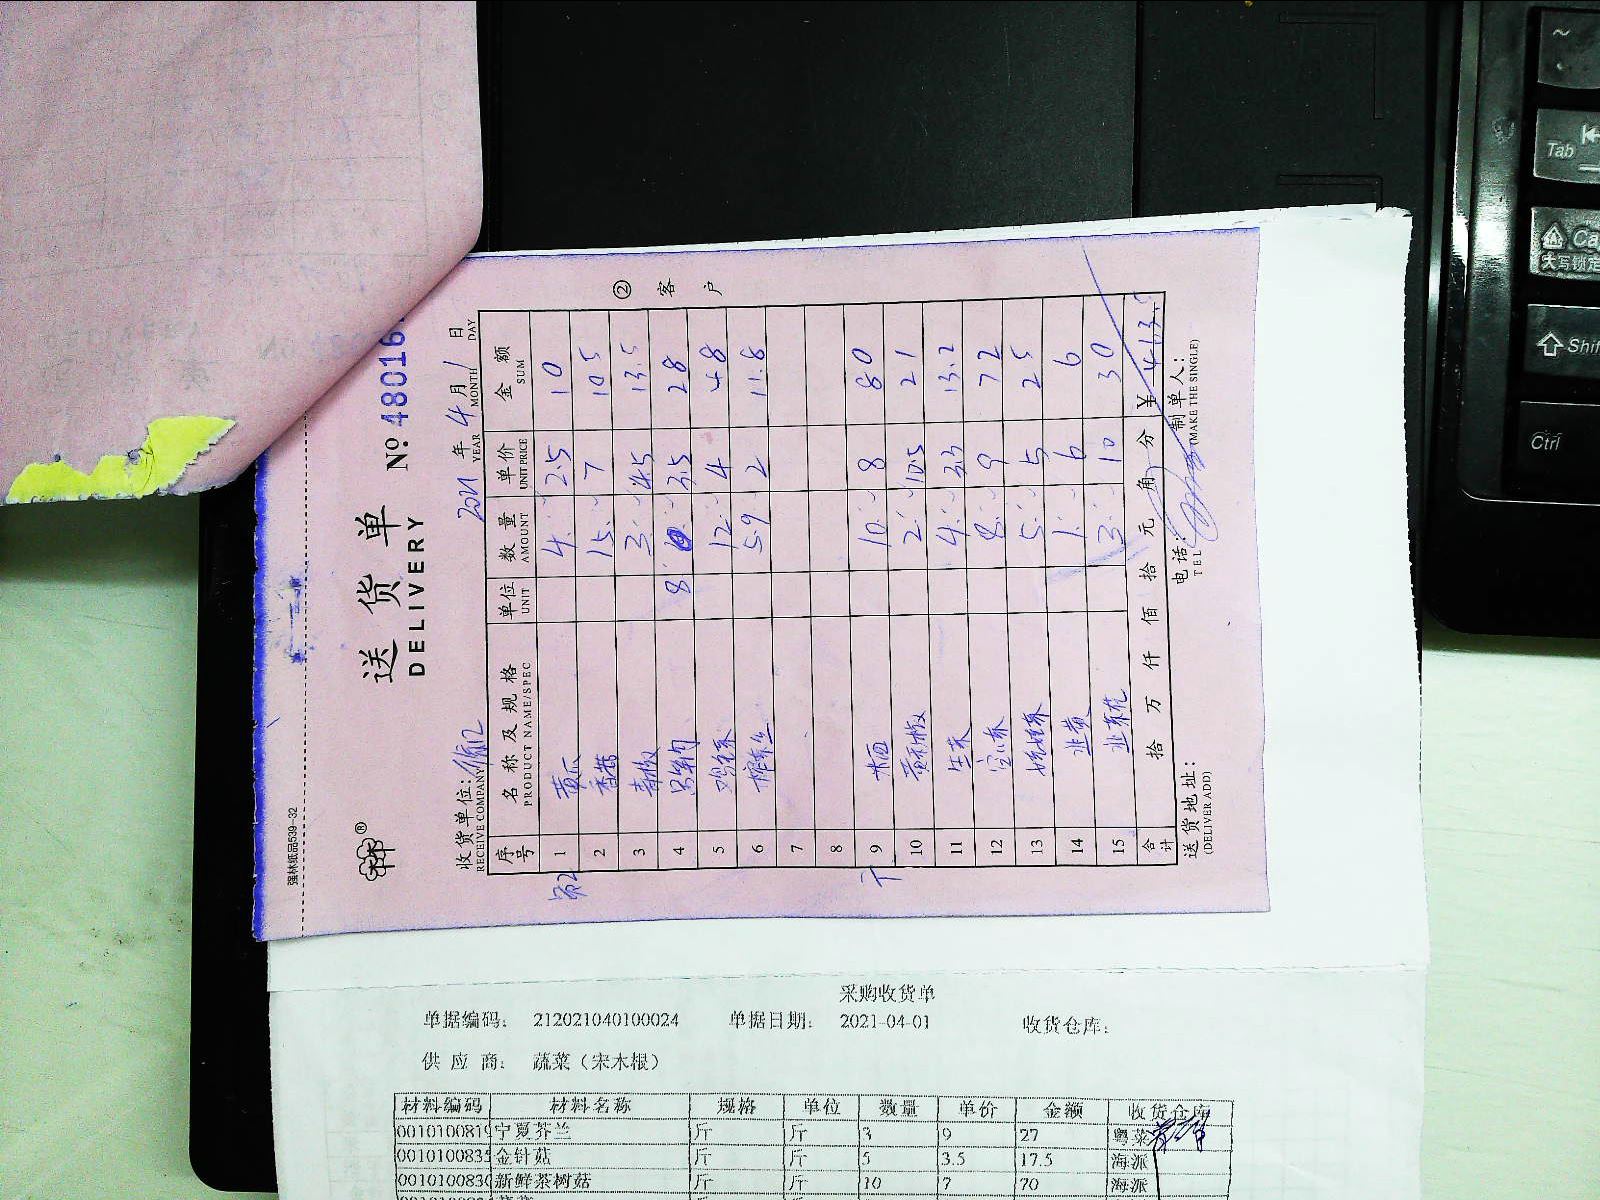 强林纸品539-32
送货单
DELIVERY
№ 48016
收货单位:
RECEIVE COMPANY
2021年4月1日
YEAR MONTH DAY
序号 名称及规格 单位 数量 单价 金额
PRODUCT NAME/SPEC UNIT AMOUNT UNIT PRICE SUM
1 黄瓜 4 2.5 10
2 香菇 15 7 105
3 青椒 3 4.5 13.5
4 8 3.5 28
5 12 4 48
6 5.9 2 11.8
7
8
9 10 8 80
10 2 10.5 21
11 生菜 4 3.3 13.2
12 空心菜 8 9 72
13 娃娃菜 5 5 25
14 韭黄 1 6 6
15 韭菜花 3 10 30
合计 拾 万 仟 佰 拾 元 角 分 ¥ 413.
送货地址:
(DELIVER ADD)
电话:
TEL
制单人:
(MAKE THE SINGLE)
② 客户
采购收货单
单据编码: 212021040100024 单据日期: 2021-04-01 收货仓库:
供应商: 蔬菜(宋木根)
材料编码 材料名称 规格 单位 数量 单价 金额 收货仓库
001010081 宁夏芥兰 斤 斤 3 9 27 粤菜
001010083 金针菇 斤 斤 5 3.5 17.5 海派
001010083 新鲜茶树菇 斤 斤 10 7 70 海派
~
Tab
大写锁定
Shif
Ctrl